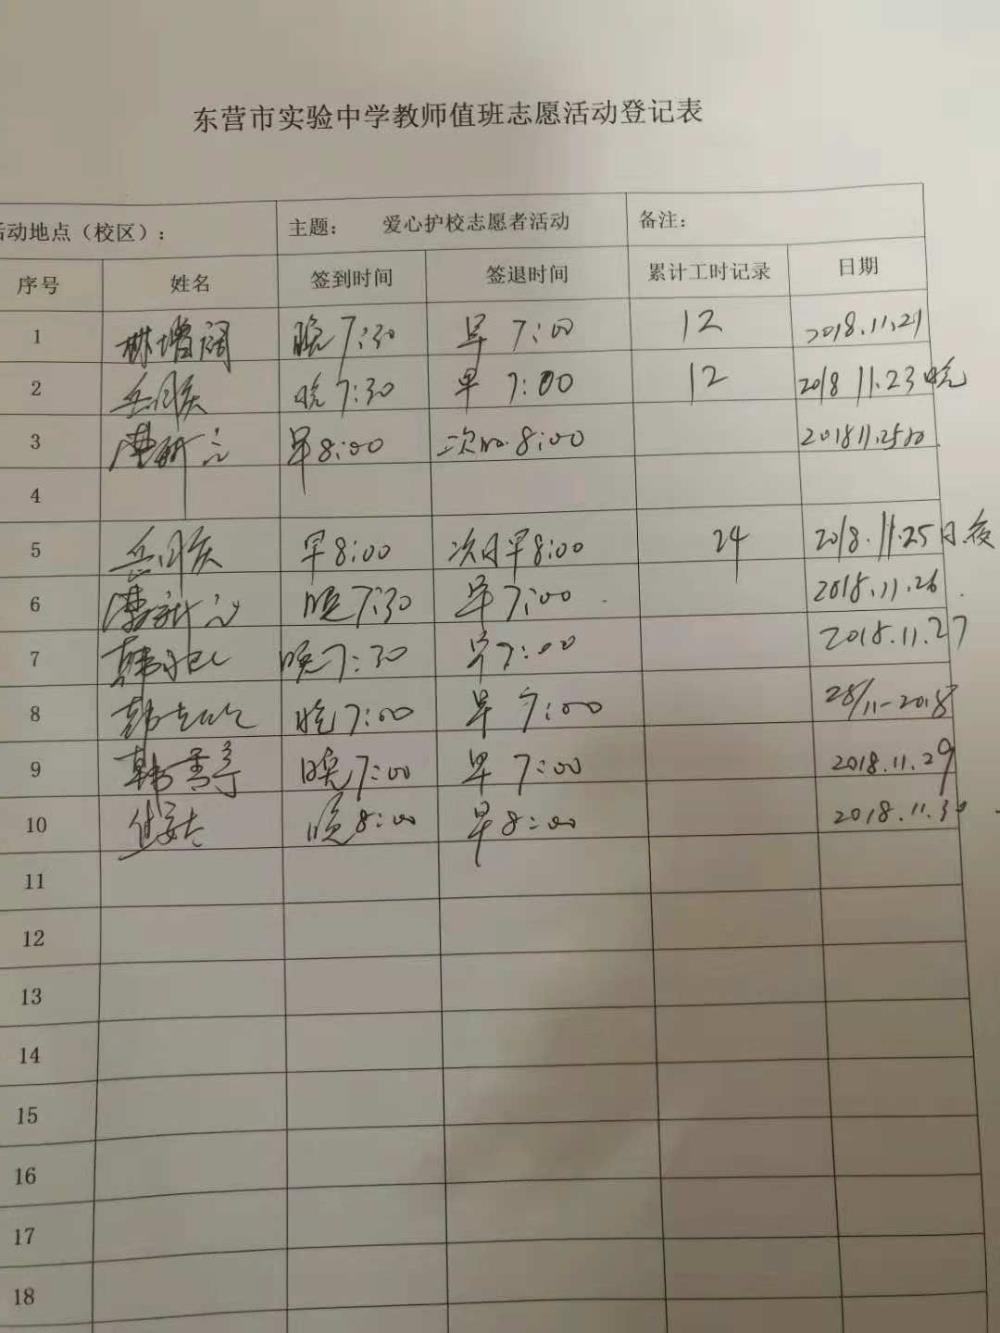 东营市实验中学教师值班志愿活动登记表
活动地点（校区）： 主题： 爱心护校志愿者活动 备注：
序号 姓名 签到时间 签退时间 累计工时记录 日期
1 林增阔 晚7:30 早 7:00 12 2018.11.21
2 晚7:30 早 7:00 12 2018 11.23晚
3 早8:00 次日 8:00 2018 11.25
4
5 早8:00 次日早8:00 24 2018.11.25日夜
6 晚7:30 早7:00 2018.11.26
7 晚7:30 早7:00 2018.11.27
8 晚7:00 早 7:00 28/11-2018
9 晚7:00 早 7:00 2018.11.29
10 晚8:00 早8:00 2018.11.30
11
12
13
14
15
16
17
18